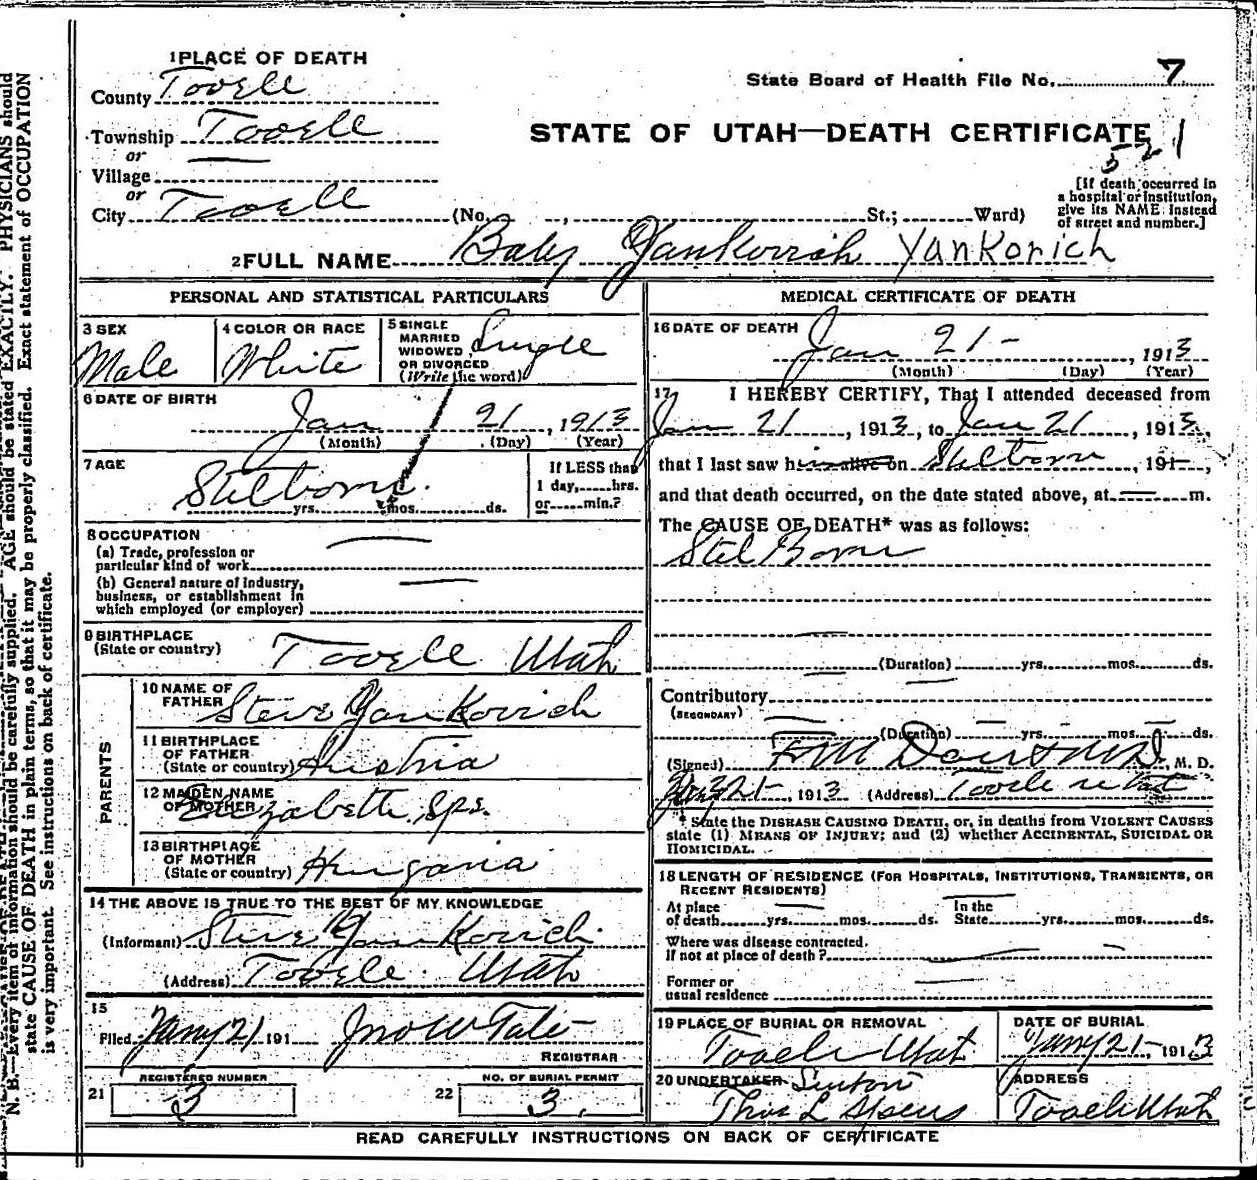 1 PLACE OF DEATH
County Tooele
State Board of Health File No. 7
Township Tooele
STATE OF UTAH—DEATH CERTIFICATE
521
or
Village
or
City Tooele (No. , St.; Ward)
[If death occurred in a hospital or institution, give its NAME instead of street and number.]
2 FULL NAME Baby Yankovich Yankorich
PERSONAL AND STATISTICAL PARTICULARS
3 SEX
Male
4 COLOR OR RACE
White
5 SINGLE MARRIED WIDOWED OR DIVORCED (Write the word) Single
6 DATE OF BIRTH
Jan 21, 1913
(Month) (Day) (Year)
7 AGE
Stilborn
yrs. mos. ds.
If LESS than
1 day, hrs.
or min.?
8 OCCUPATION
(a) Trade, profession or
particular kind of work
(b) General nature of industry,
business, or establishment in
which employed (or employer)
9 BIRTHPLACE
(State or country) Tooele Utah
PARENTS
10 NAME OF
FATHER Steve Yankovich
11 BIRTHPLACE
OF FATHER
(State or country) Austria
12 MAIDEN NAME
OF MOTHER Elizabeth
13 BIRTHPLACE
OF MOTHER
(State or country) Hungaria
14 THE ABOVE IS TRUE TO THE BEST OF MY KNOWLEDGE
(Informant) Steve Yankovich
(Address) Tooele Utah
15
Filed Jany 21 191 Jno W Tate
REGISTRAR
REGISTERED NUMBER
21 3
NO. OF BURIAL PERMIT
22 3.
MEDICAL CERTIFICATE OF DEATH
16 DATE OF DEATH
Jan 21 - , 1913
(Month) (Day) (Year)
17 I HEREBY CERTIFY, That I attended deceased from
Jan 21, 1913, to Jan 21, 1913,
that I last saw him alive on Stilborn, 191-,
and that death occurred, on the date stated above, at m.
The CAUSE OF DEATH* was as follows:
Stil Born
(Duration) yrs. mos. ds.
Contributory
(SECONDARY)
(Duration) yrs. mos. ds.
(Signed) F M Davis M.D., M. D.
Jan 21-, 1913 (Address) Tooele Utah
* State the DISEASE CAUSING DEATH, or, in deaths from VIOLENT CAUSES
state (1) MEANS OF INJURY; and (2) whether ACCIDENTAL, SUICIDAL OR
HOMICIDAL.
18 LENGTH OF RESIDENCE (FOR HOSPITALS, INSTITUTIONS, TRANSIENTS, OR
RECENT RESIDENTS)
At place
of death yrs. mos. ds.
In the
State yrs. mos. ds.
Where was disease contracted.
If not at place of death?
Former or
usual residence
19 PLACE OF BURIAL OR REMOVAL
Tooele Utah
DATE OF BURIAL
Jany 21-, 1913
20 UNDERTAKER Sexton
Thos L
ADDRESS
Tooele Utah
READ CAREFULLY INSTRUCTIONS ON BACK OF CERTIFICATE
N. B.—Every item of information should be carefully supplied. AGE should be stated EXACTLY. PHYSICIANS should
state CAUSE OF DEATH in plain terms, so that it may be properly classified. Exact statement of OCCUPATION
is very important. See instructions on back of certificate.